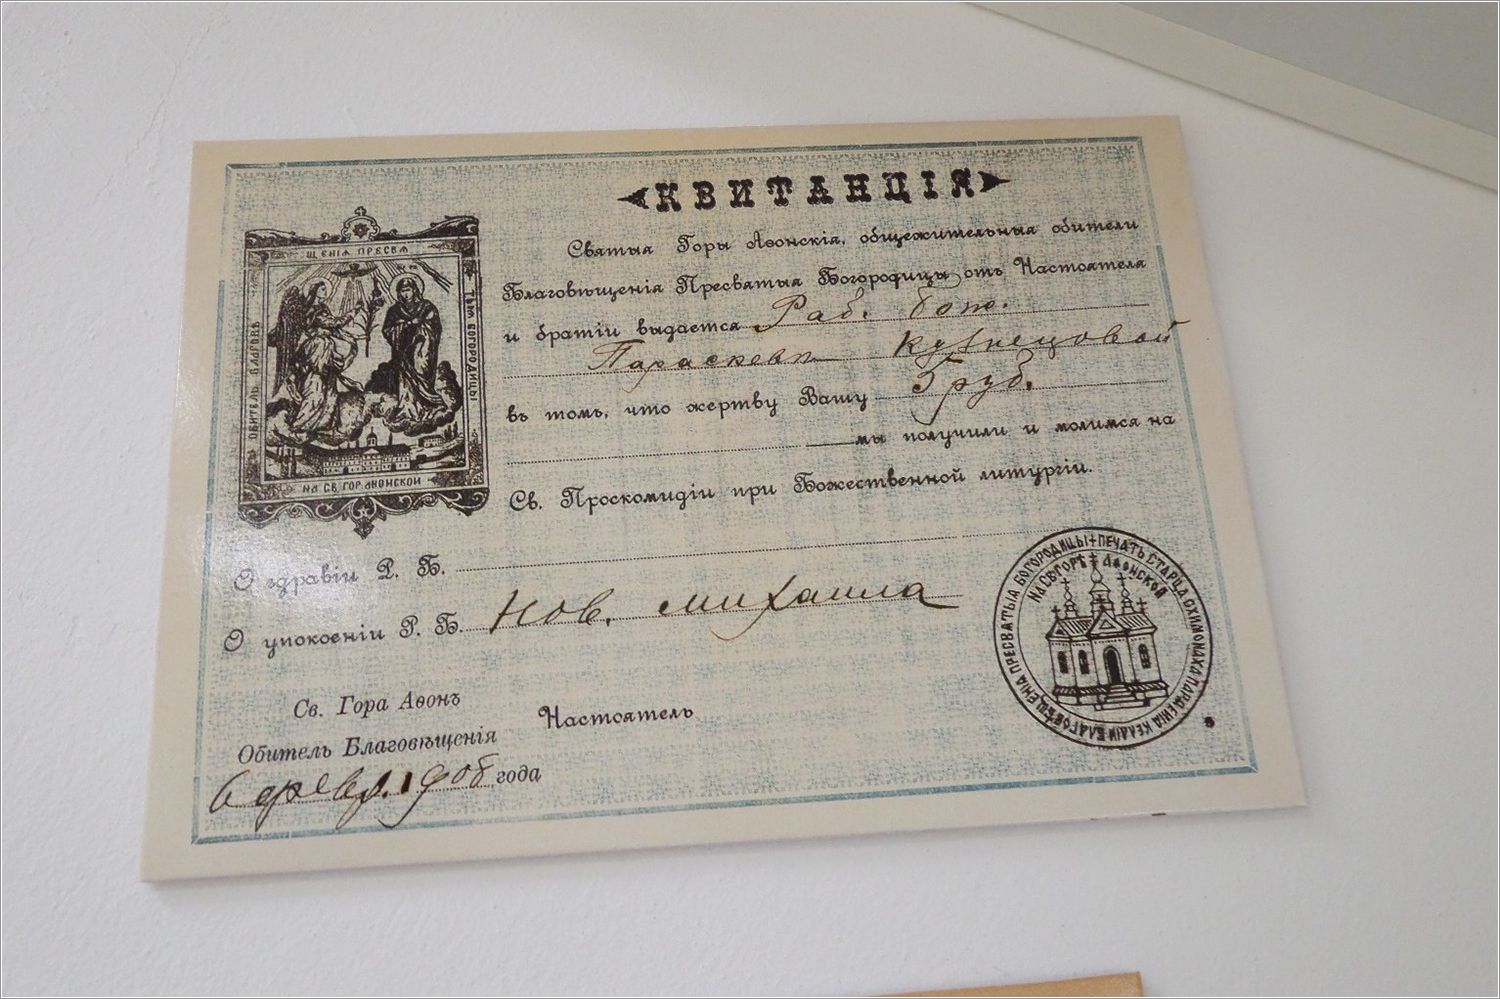 КВИТАНЦІЯ
Святыя Горы Аѳонскія, общежительныя обители
Благовѣщенія Пресвятыя Богородицы отъ Настоятеля
и братіи выдается Раб. бож.
Параскевѣ Кузнецовой
въ томъ, что жертву Вашу 5 руб.
мы получили и молимся на
Св. Проскомидіи при Божественной литургіи.
ОБИТЕЛЬ БЛАГОВѢ
ЩЕНІЯ ПРЕСВЯ
ТЫЯ БОГОРОДИЦЫ
НА СВ. ГОР. АѲОНСКОЙ
О здравіи Р. Б.
О упокоеніи Р. Б. Нов. Михаила
Св. Гора Аѳонъ
Обитель Благовѣщенія
6 февр. 1908 года
Настоятель
ПЕЧАТЬ СТАРЦА СХИМОНАХА ПАРѲЕНІЯ КЕЛЛІИ БЛАГОВѢЩЕНІЯ ПРЕСВЯТЫЯ БОГОРОДИЦЫ
НА СВ. ГОРѢ АѲОНСКОЙ